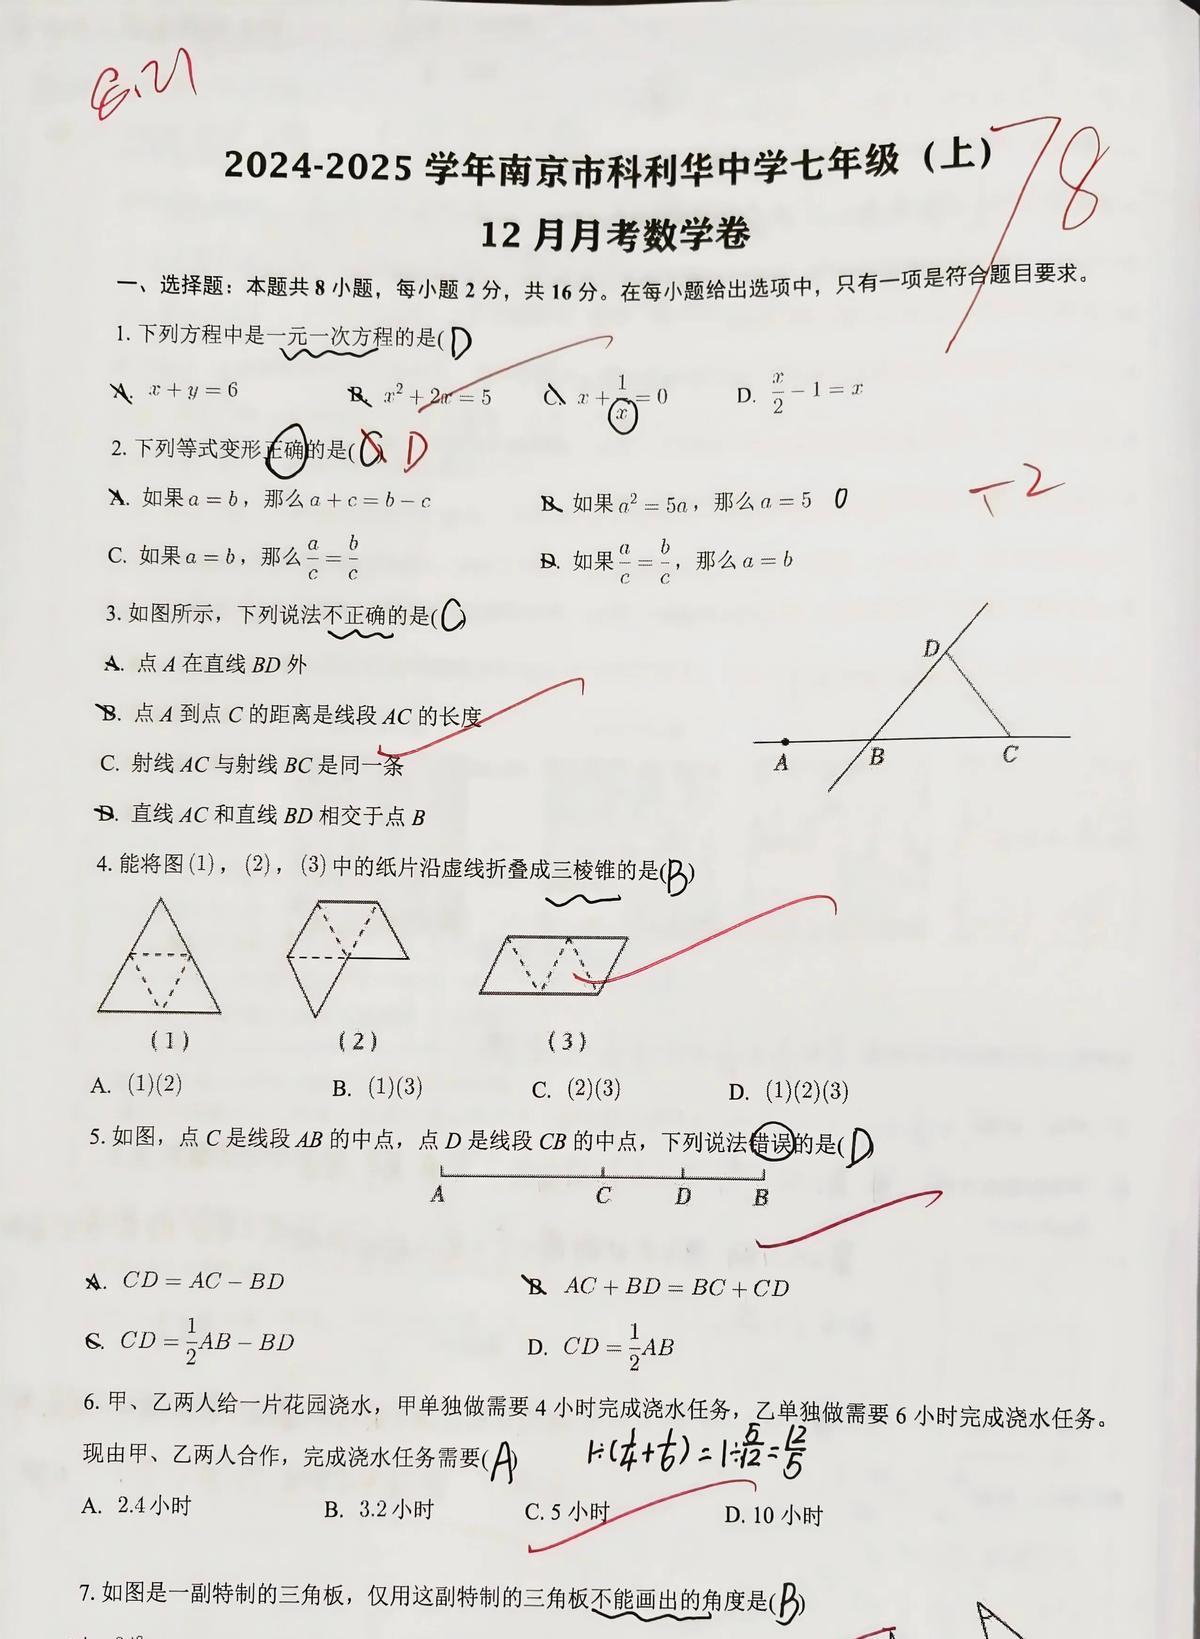 8.21
78
2024-2025 学年南京市科利华中学七年级（上）
12 月月考数学卷
一、选择题：本题共 8 小题，每小题 2 分，共 16 分。在每小题给出选项中，只有一项是符合题目要求。
1. 下列方程中是一元一次方程的是( D )
A. x + y = 6 B. x² + 2x = 5 C. x + 1/x = 0 D. x/2 − 1 = x
2. 下列等式变形正确的是( C ) D
-2
A. 如果 a = b，那么 a + c = b − c B. 如果 a² = 5a，那么 a = 5 0
C. 如果 a = b，那么 a/c = b/c D. 如果 a/c = b/c，那么 a = b
3. 如图所示，下列说法不正确的是( C )
A. 点 A 在直线 BD 外
B. 点 A 到点 C 的距离是线段 AC 的长度
C. 射线 AC 与射线 BC 是同一条
D. 直线 AC 和直线 BD 相交于点 B
D
A B C
4. 能将图 (1)， (2)， (3) 中的纸片沿虚线折叠成三棱锥的是( B )
(1) (2) (3)
A. (1)(2) B. (1)(3) C. (2)(3) D. (1)(2)(3)
5. 如图，点 C 是线段 AB 的中点，点 D 是线段 CB 的中点，下列说法错误的是( D )
A C D B
A. CD = AC − BD B. AC + BD = BC + CD
C. CD = 1/2 AB − BD D. CD = 1/2 AB
6. 甲、乙两人给一片花园浇水，甲单独做需要 4 小时完成浇水任务，乙单独做需要 6 小时完成浇水任务。
现由甲、乙两人合作，完成浇水任务需要( A ) 1÷(1/4+1/6)=1÷5/12=12/5
A. 2.4 小时 B. 3.2 小时 C. 5 小时 D. 10 小时
7. 如图是一副特制的三角板，仅用这副特制的三角板不能画出的角度是( B )